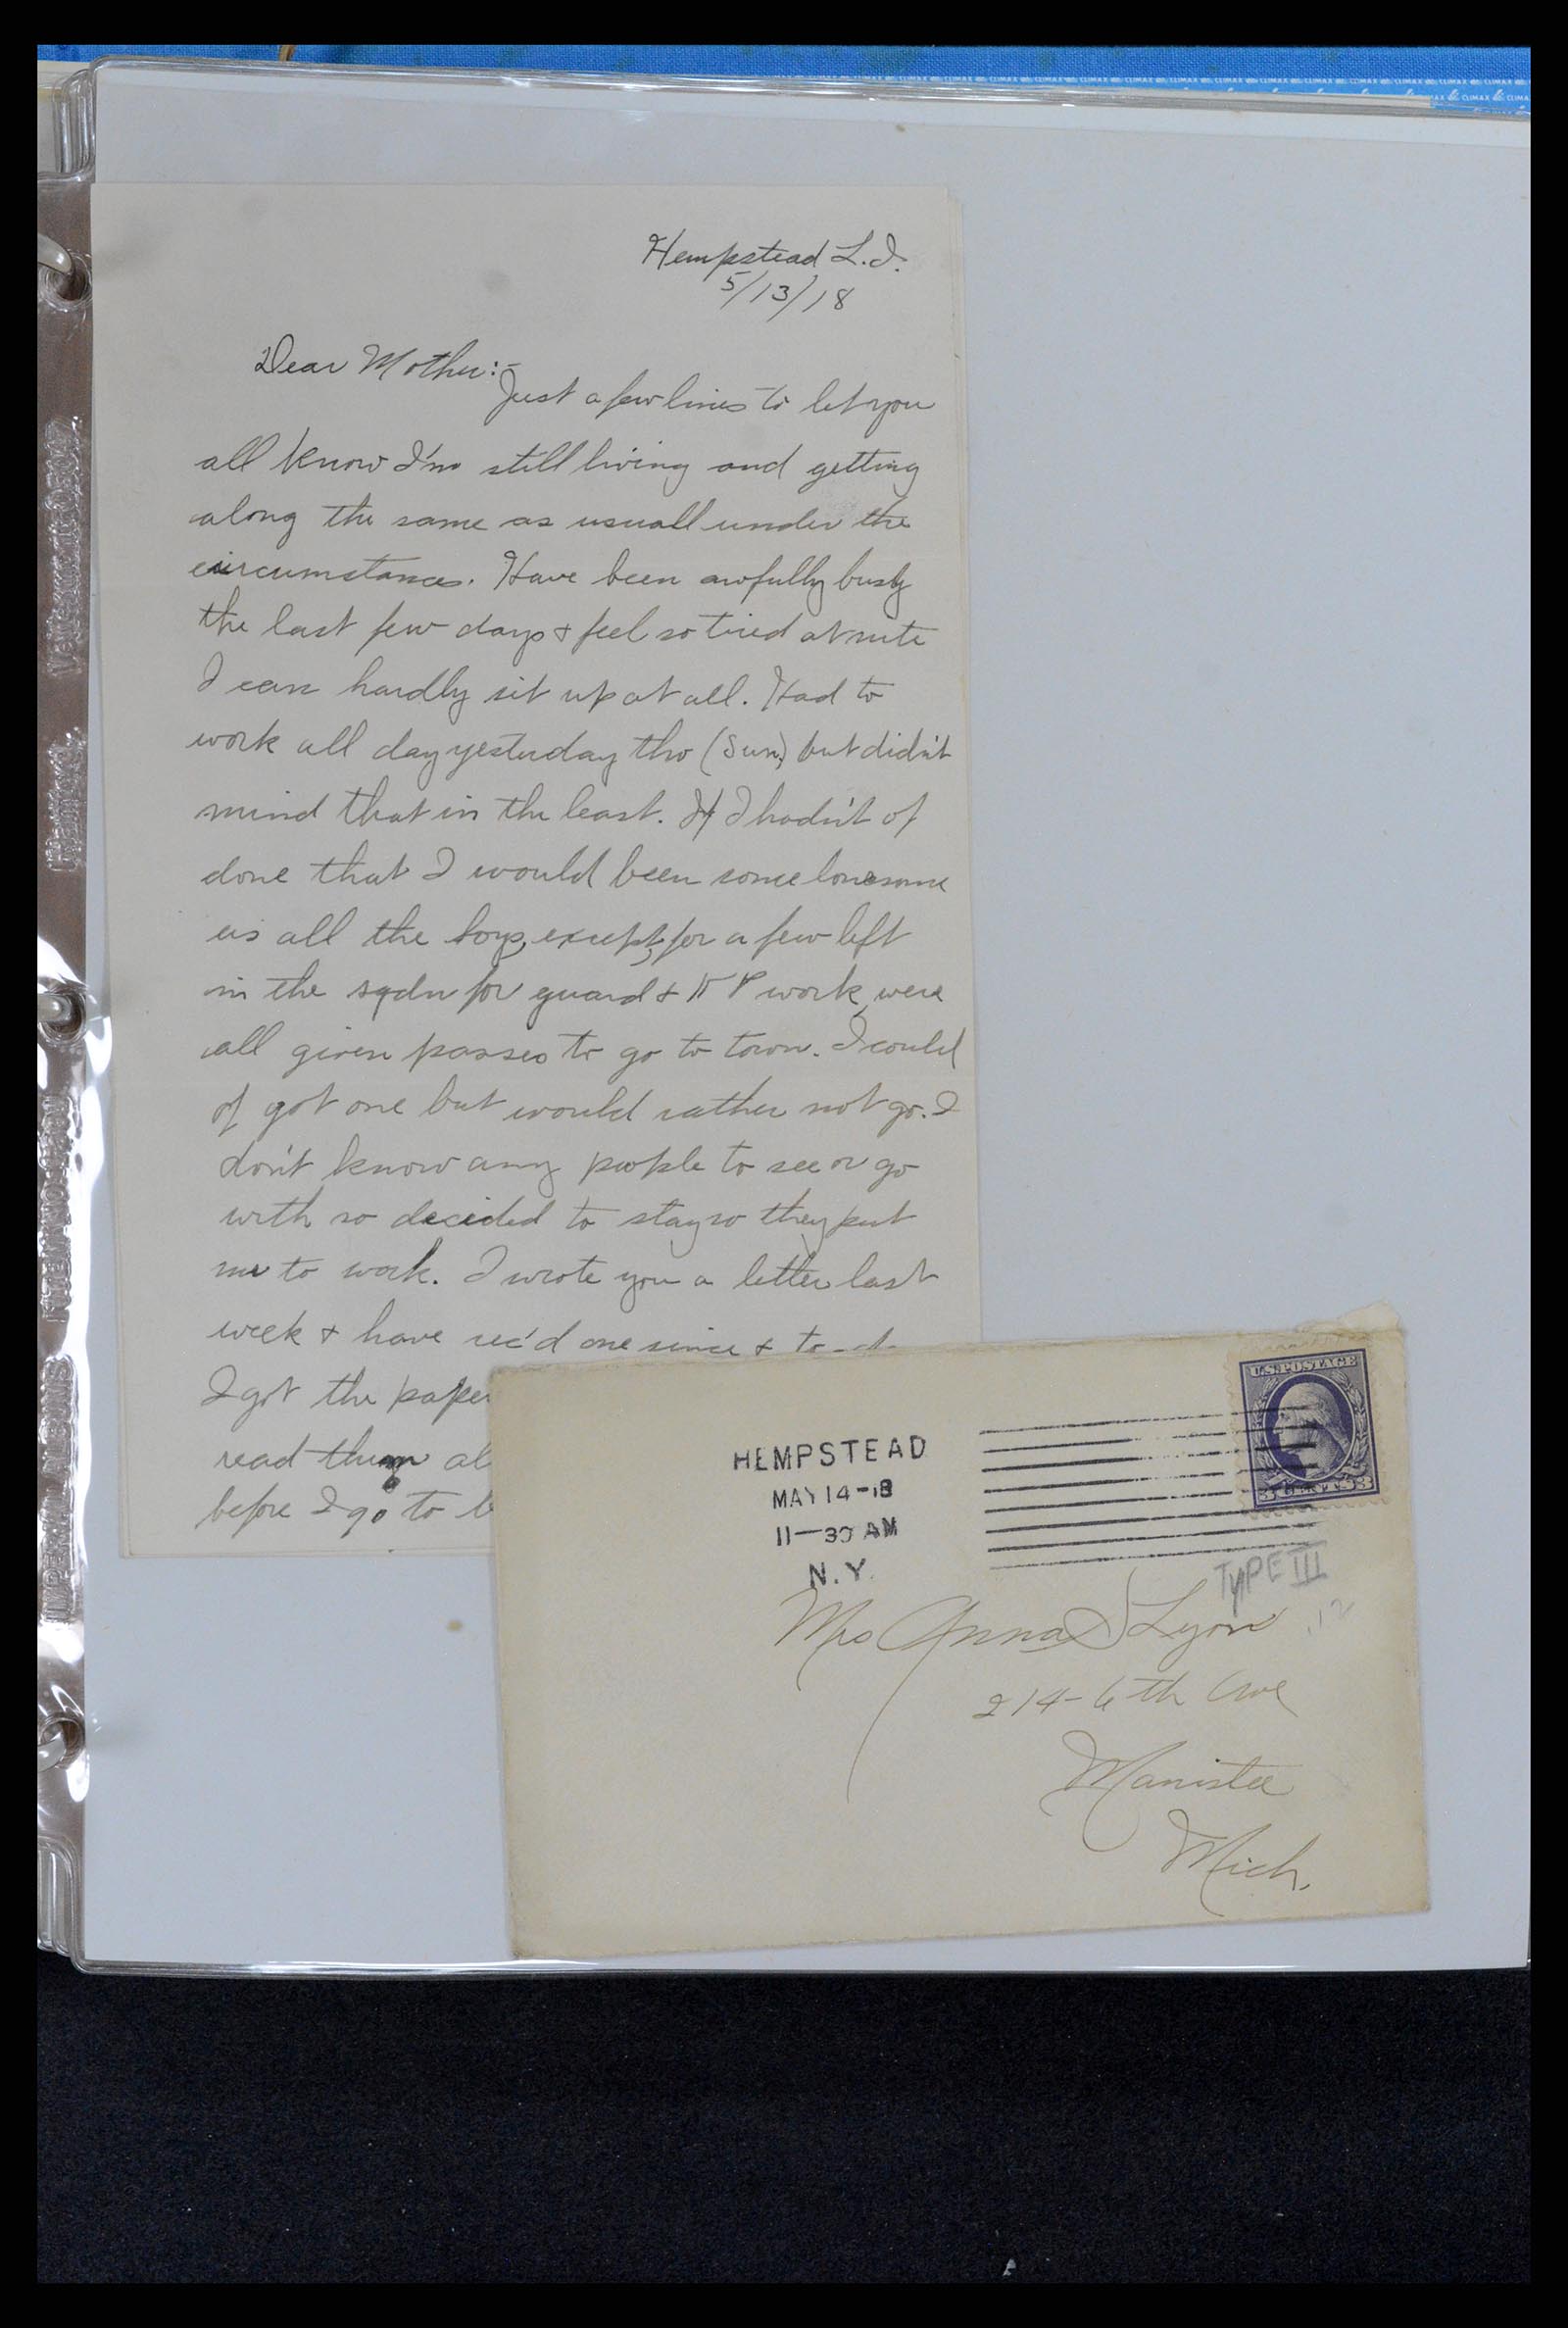 Hempstead L.I.
5/13/18
Dear Mother:-
Just a few lines to let you
all know I'm still living and getting
along the same as usuall under the
circumstances. Have been awfully busy
the last few days & feel so tired at nite
I can hardly sit up at all. Had to
work all day yesterday tho (Sun.) but didn't
mind that in the least. If I hadn't of
done that I would been some lonesome
as all the boys, except, for a few left
in the sqdn for guard & K P work, were
all given passes to go to town. I could
of got one but would rather not go. I
don't know any people to see or go
with so decided to stay so they put
me to work. I wrote you a letter last
week & have rec'd one since & to-d
I got the paper
read them al
before I go to b
U.S.POSTAGE
3 CENTS 3
HEMPSTEAD
MAY 14-18
11-30 AM
N.Y.
TYPE III
12
Mrs Anna S Lyon
214-6th Ave
Manistee
Mich.
CLIMAX